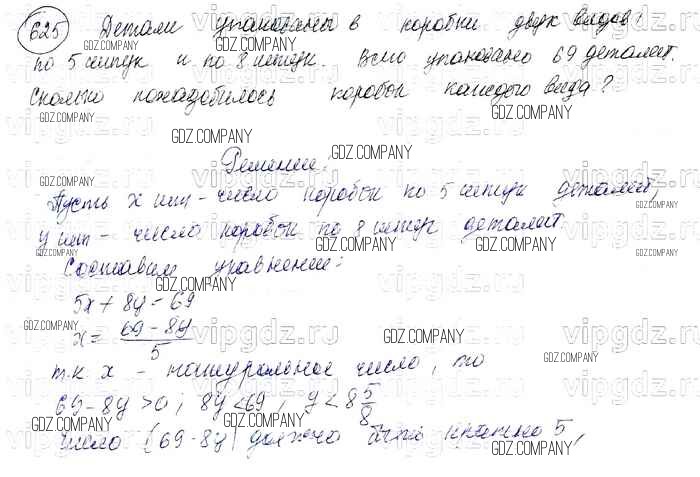 625 Детали упакованы в коробки двух видов:
по 5 штук и по 8 штук. Всего упаковано 69 деталей.
Сколько понадобилось коробок каждого вида?
Решение.
Пусть x шт - число коробок по 5 штук деталей,
y шт - число коробок по 8 штук деталей
Составим уравнение:
5x + 8y = 69
x = (69 - 8y)/5
т.к x - натуральное число, то
69 - 8y > 0; 8y < 69, y < 8 5/8
число (69 - 8y) должно быть кратно 5,
GDZ.COMPANY
vipgdz.ru